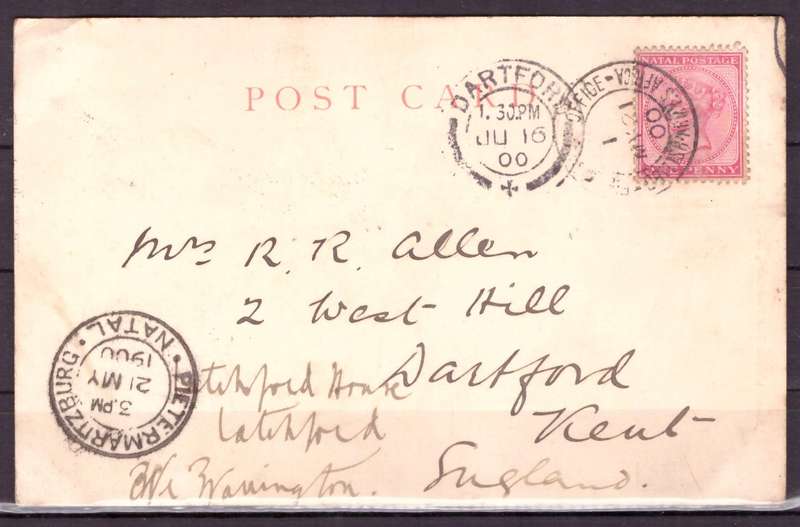 POST CARD
DARTFORD
1.30.PM
JU 16
00
NATAL POSTAGE
ONE PENNY
OFFICE-
S.AFRICA
MY 21
00
1
Mrs R. R. Allen
2 West Hill
Dartford
Kent
England.
Latchford House
Latchford
Nr Warrington.
PIETERMARITZBURG · NATAL ·
3.PM
21 MY
1900